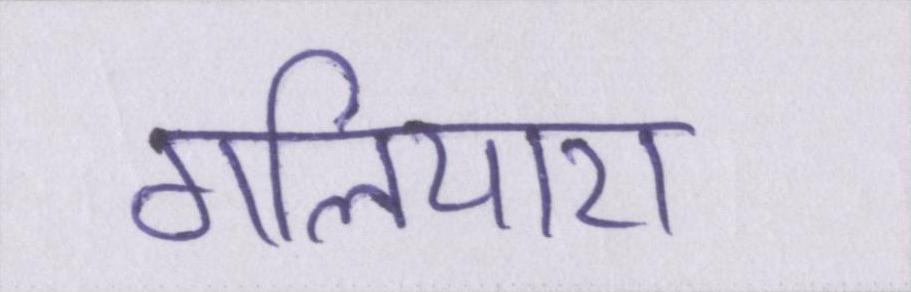 गलियारा